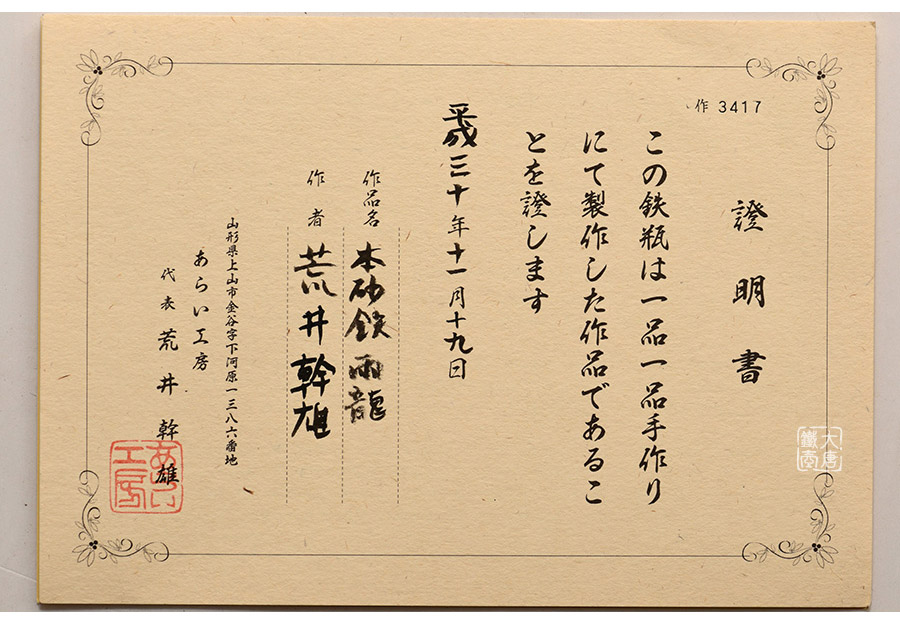 作 3417
證明書
この鉄瓶は一品一品手作り
にて製作した作品であるこ
とを證します
平成三十年十一月十九日
作品名 本砂鉄 雨龍
作者 荒井幹雄
山形県上山市金谷字下河原一三八六番地
あらい工房
代表 荒井幹雄
あらい工房
大唐鐵壺